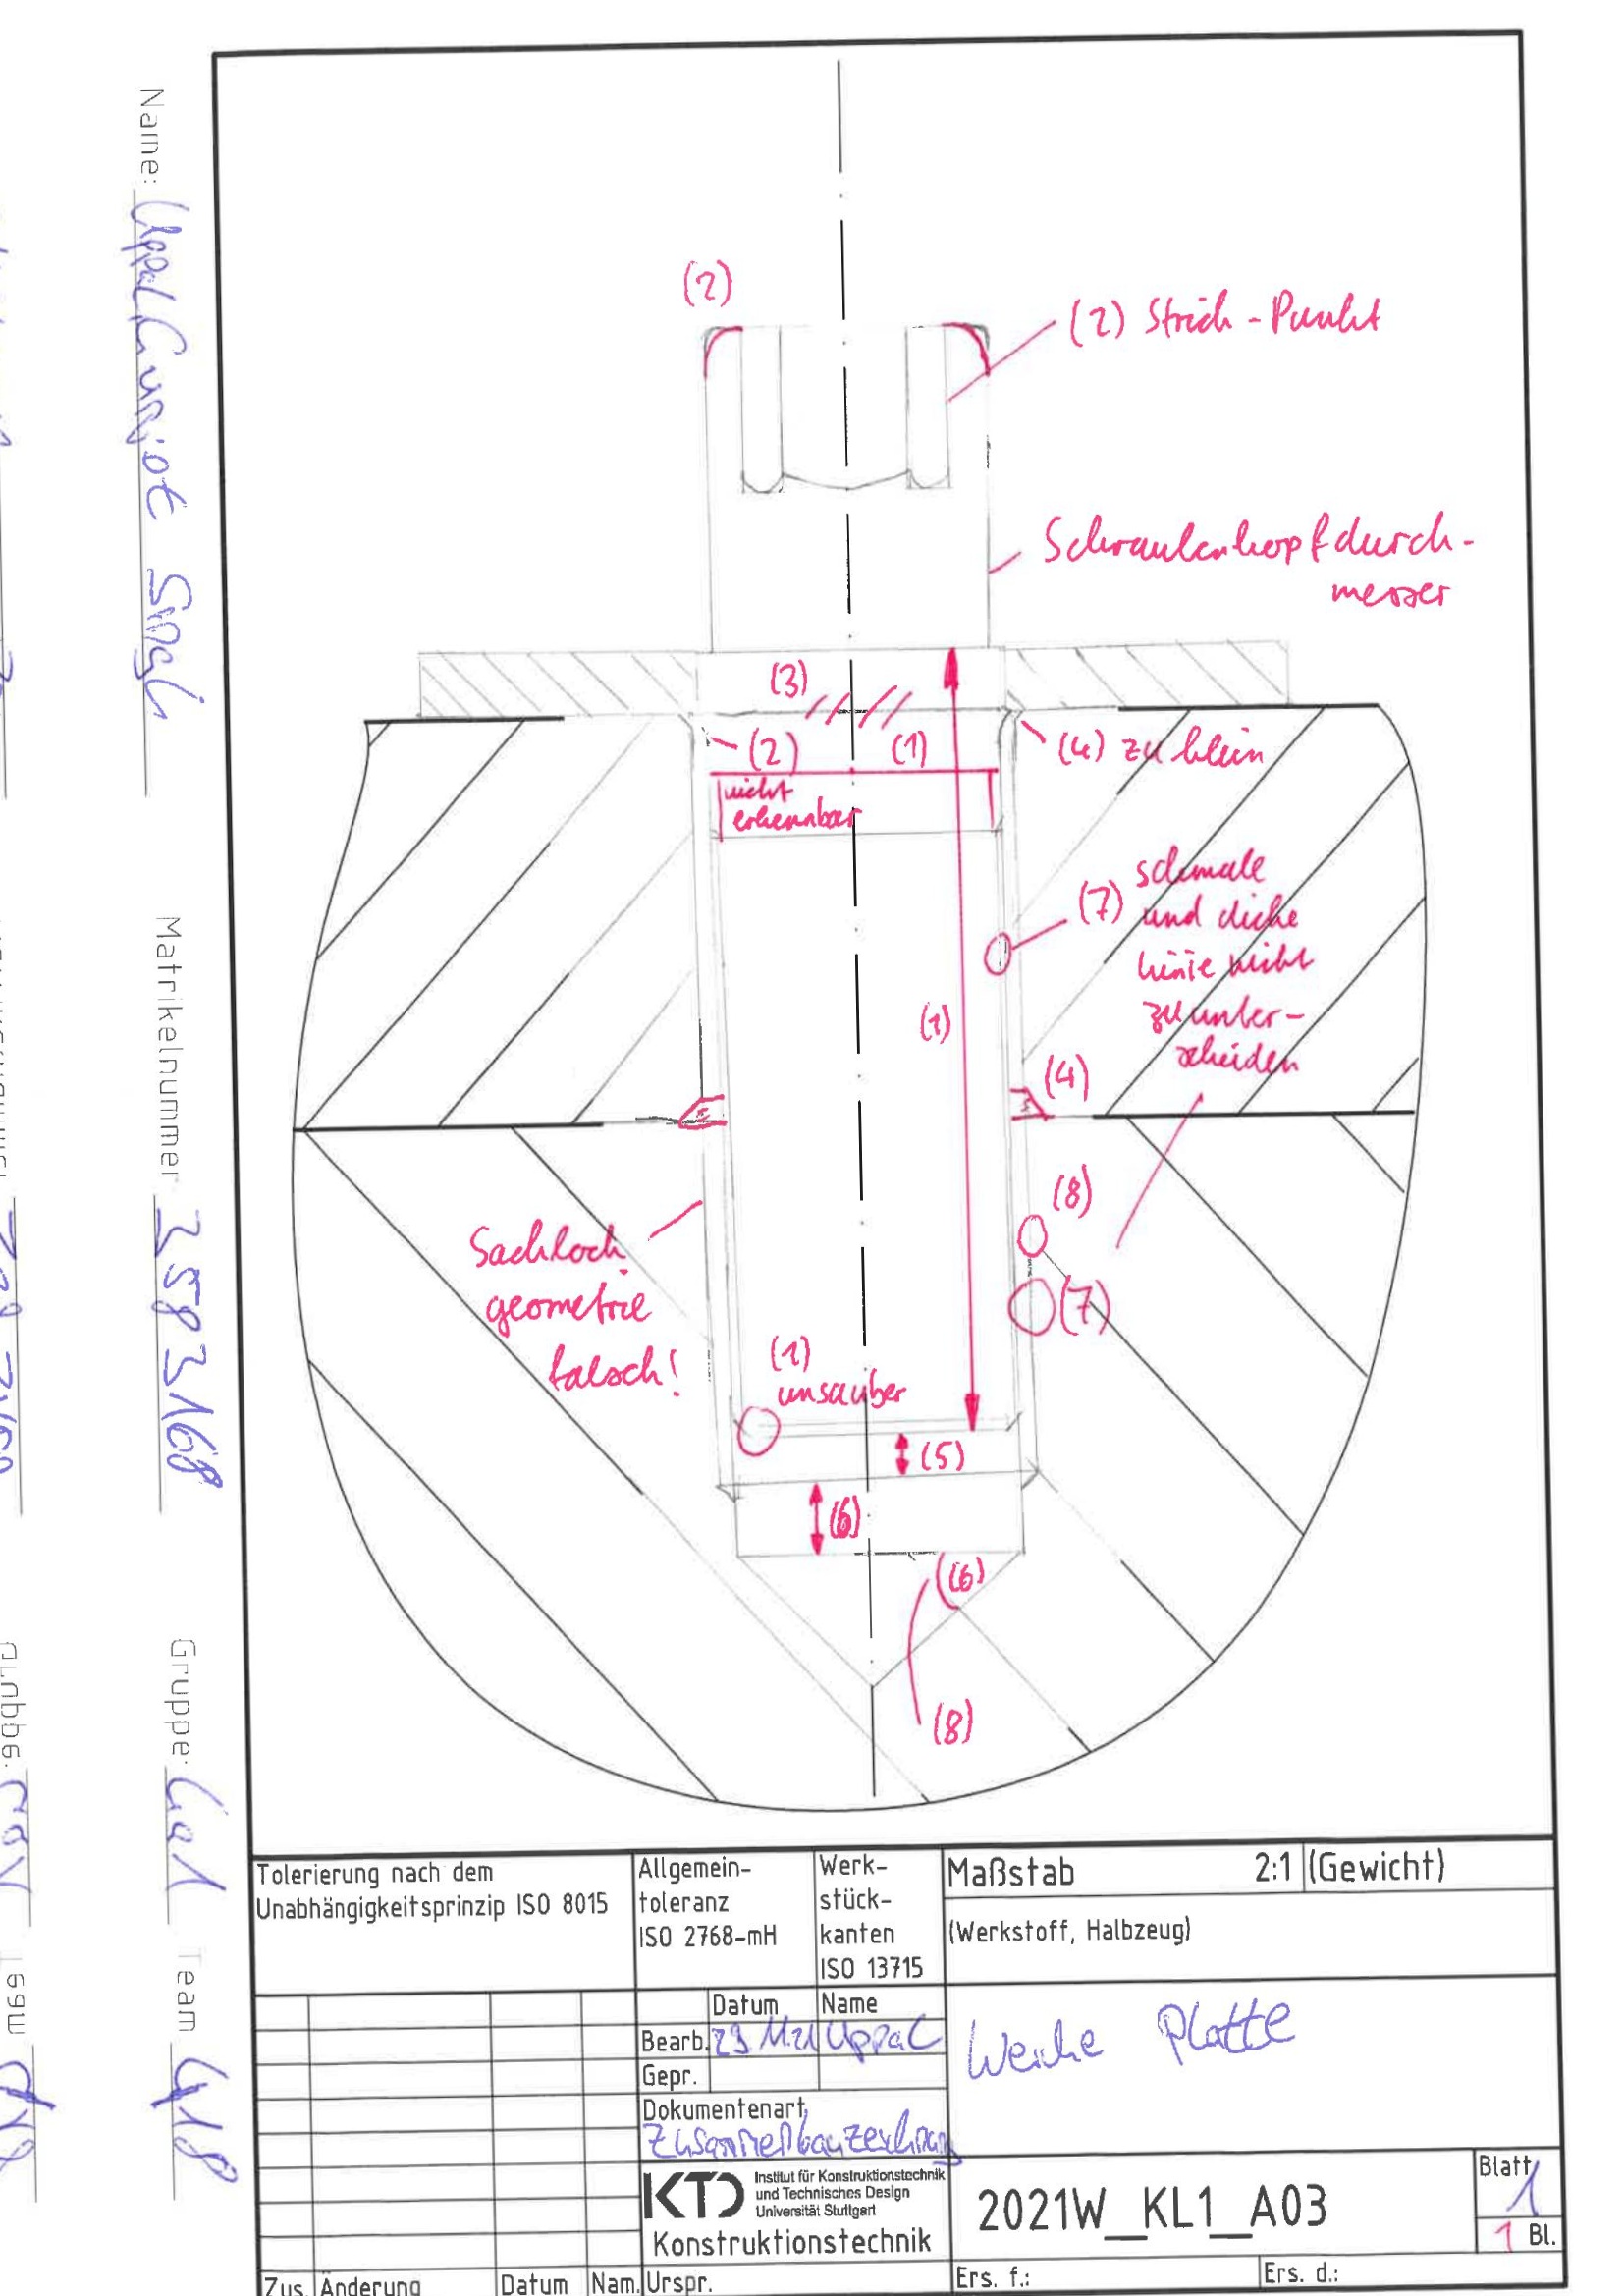 Name: Uppal Gurjot Singh
Matrikelnummer 3583168
Gruppe: Go1 Team 418
(2)
(2) Strich-Punkt
Schraubenkopfdurch-
messer
(3)
(2)
(1)
nicht
erkennbar
(4) zu klein
(7) schmale
und dicke
linie nicht
zu unter-
scheiden
(1)
(4)
(8)
(7)
Sackloch
geometrie
falsch!
(1)
unsauber
(5)
(6)
(6)
(8)
Tolerierung nach dem
Unabhängigkeitsprinzip ISO 8015
Allgemein-
toleranz
ISO 2768-mH
Werk-
stück-
kanten
ISO 13715
Maßstab 2:1 (Gewicht)
(Werkstoff, Halbzeug)
Datum Name
Bearb. Uppal
Gepr.
Dokumentenart
Zusammenbauzeichnung
Weiche Platte
KTD
Institut für Konstruktionstechnik
und Technisches Design
Universität Stuttgart
Konstruktionstechnik
2021W_KL1_A03
Blatt
1
1 Bl.
Zus. Änderung Datum Nam. Urspr.
Ers. f.: Ers. d.: